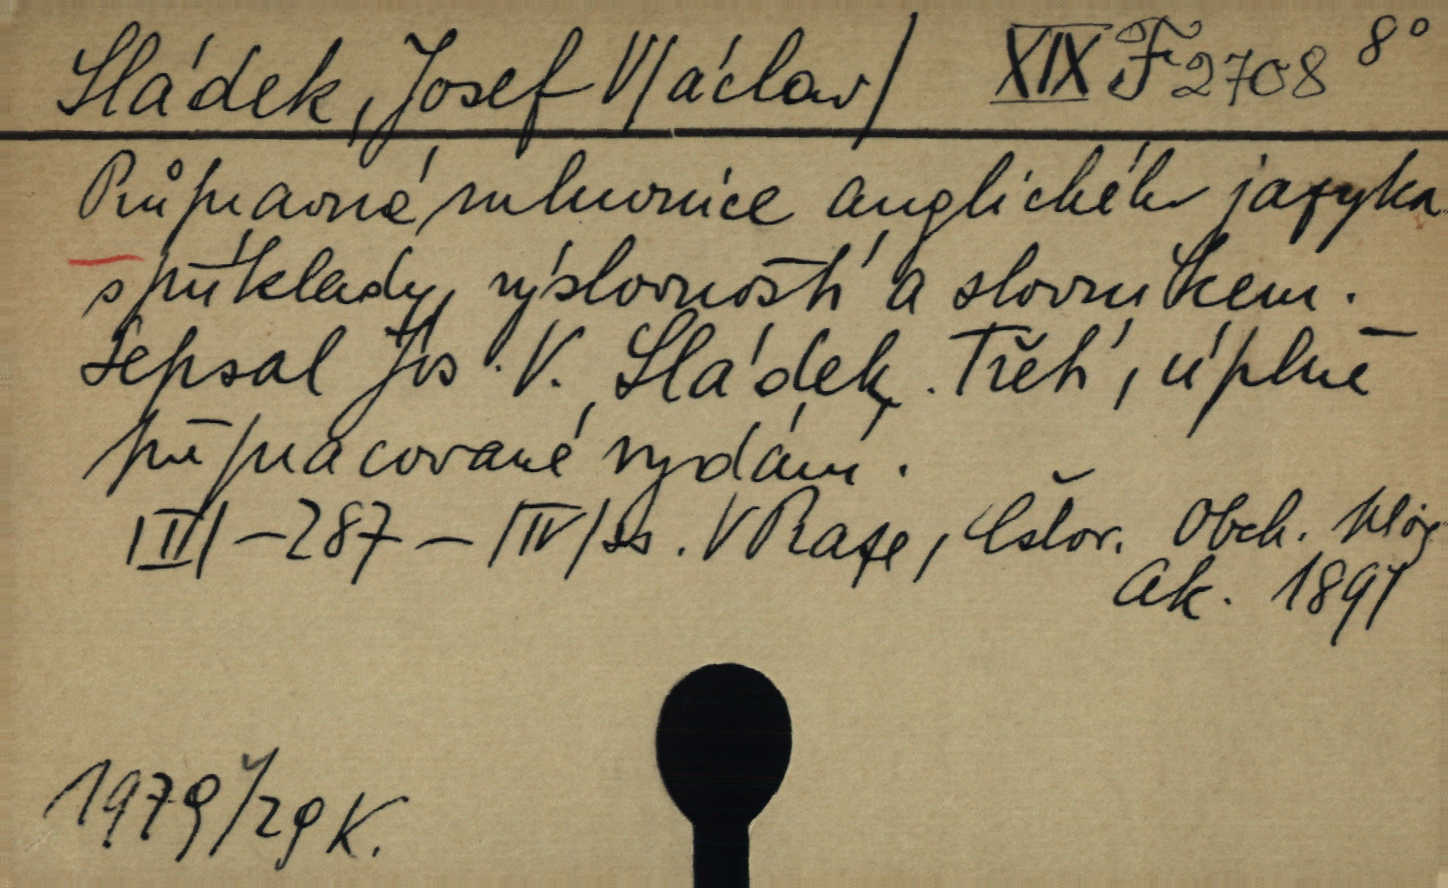 Sládek, Josef V/áclav/ XIX F 2708 8°
Průpravná mluvnice anglického jazyka
s příklady, výslovností a slovníkem.
Sepsal Jos. V. Sládek. Třetí, úplně
přepracované vydání.
/III/ – 287 – /IV/ ss. V Praze, Čslov. Obch.
Ak. 1897